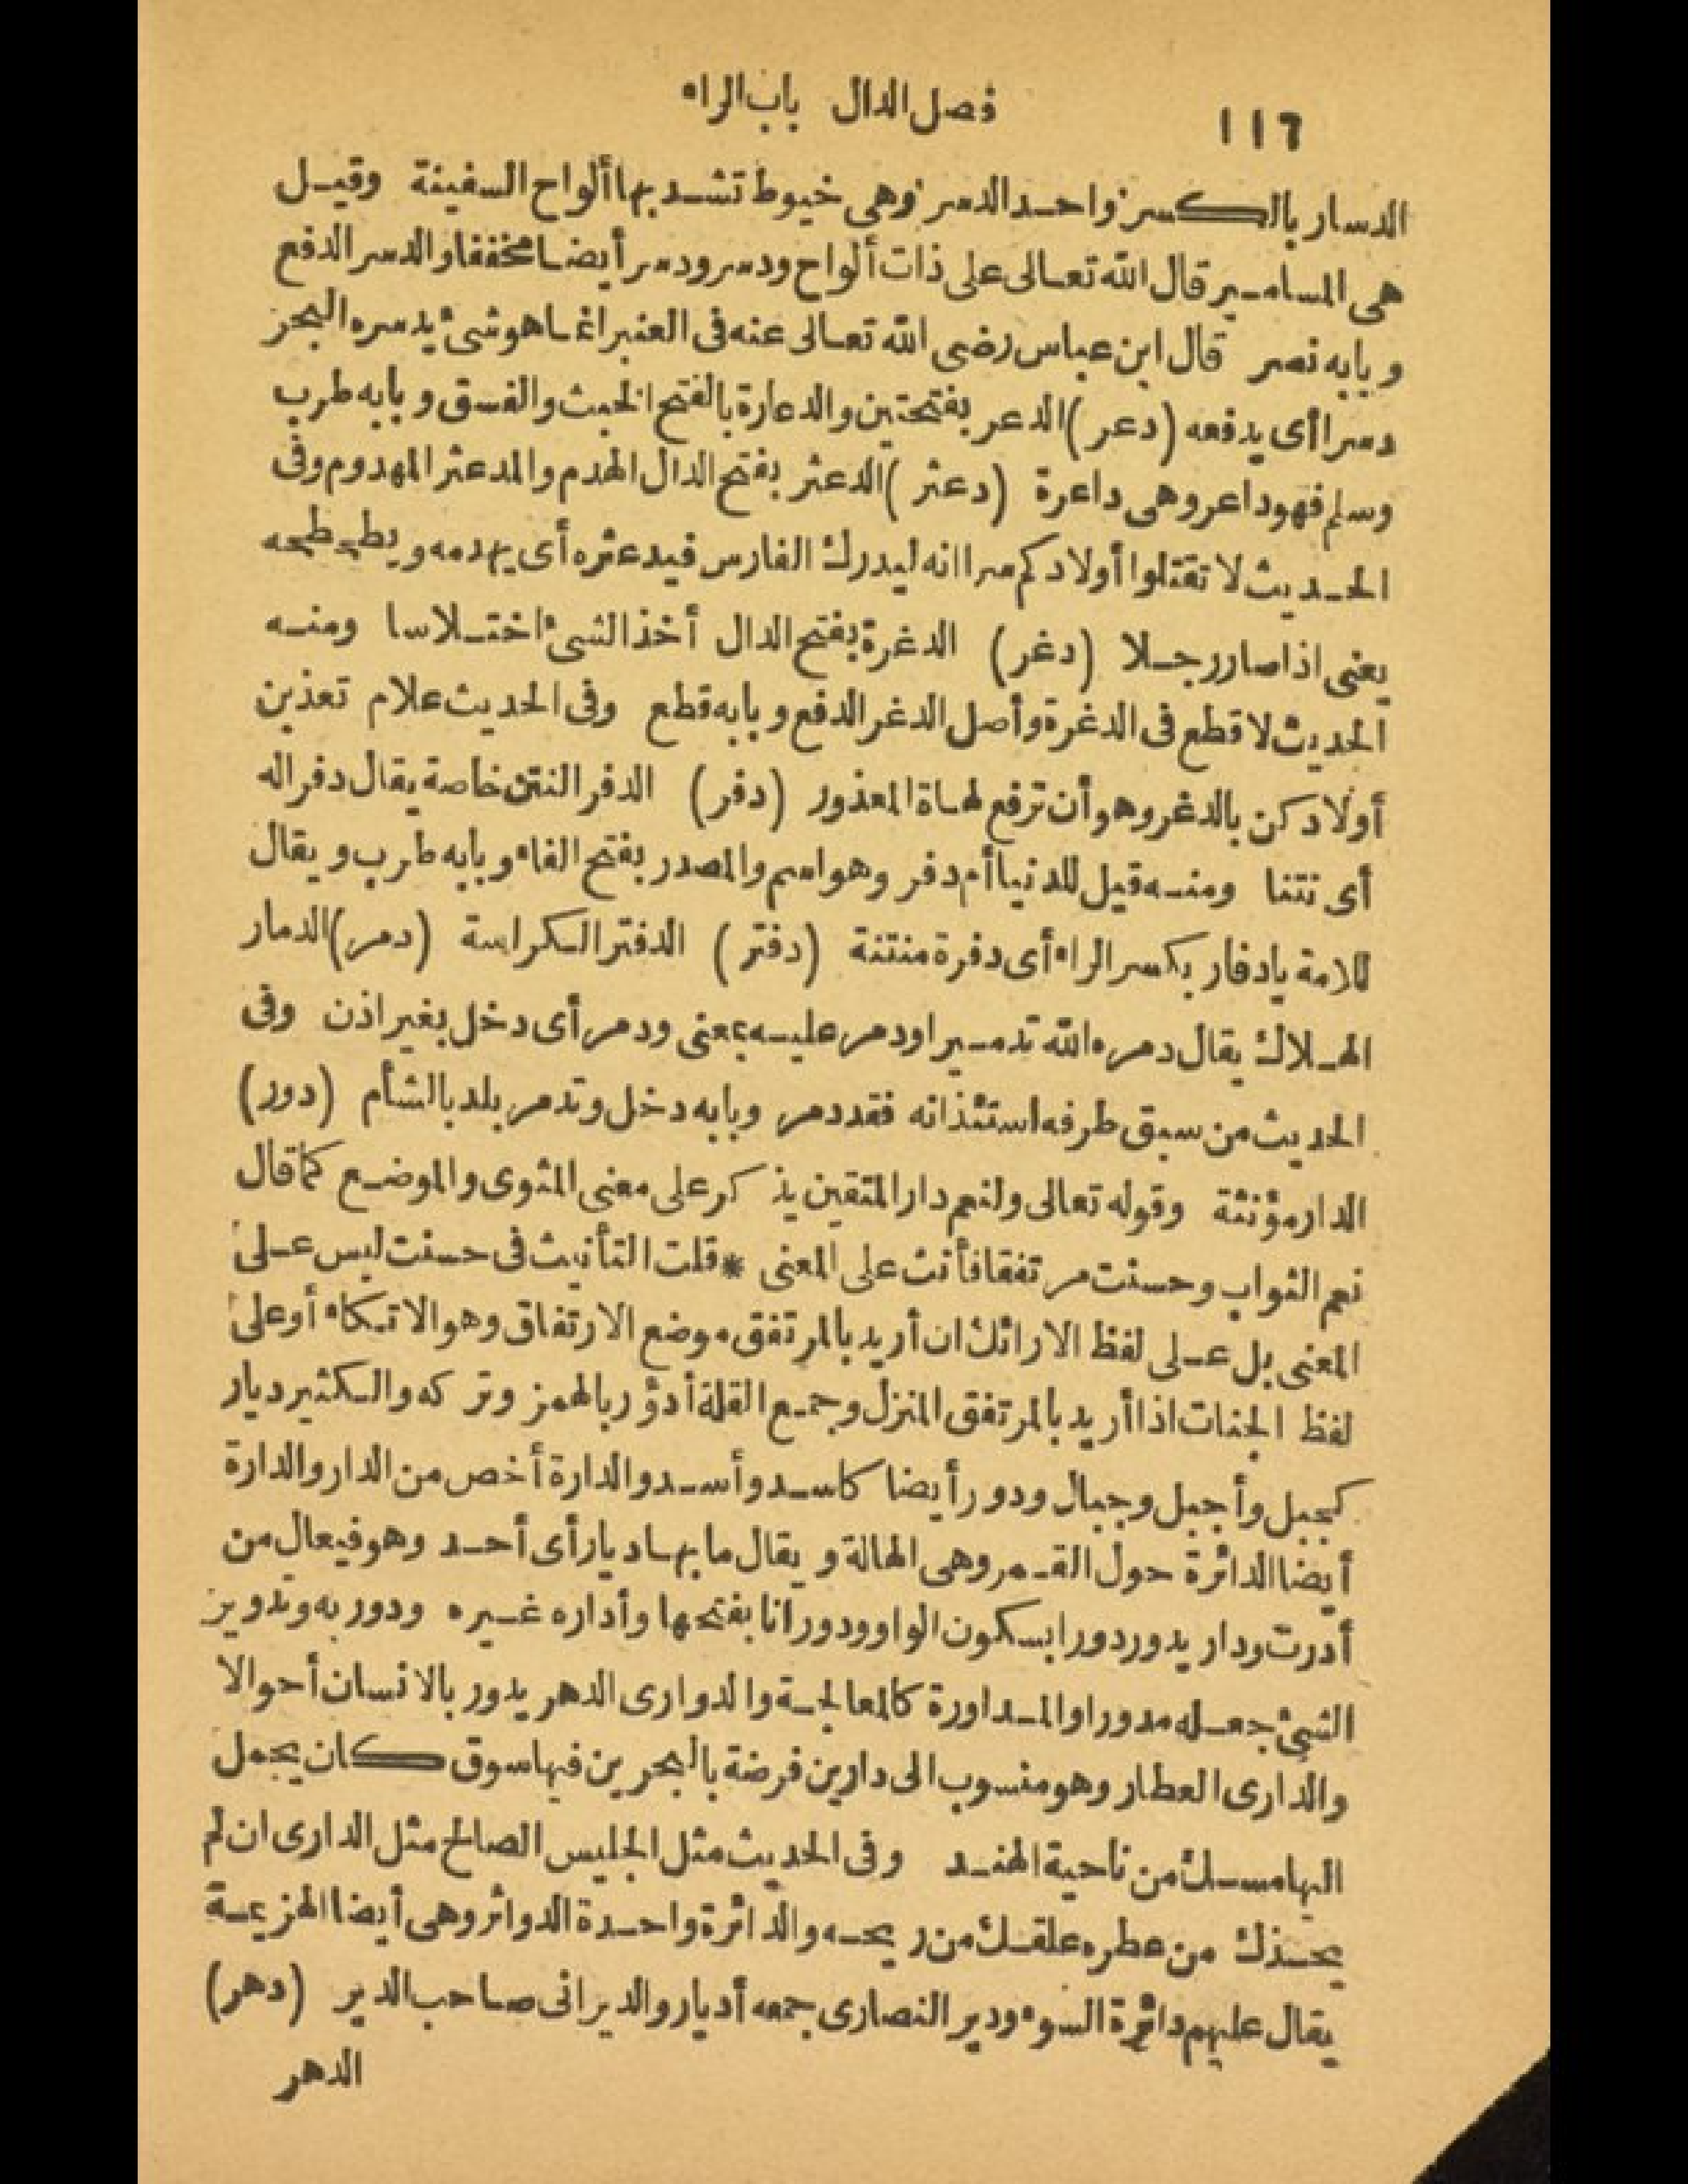 ١١٦
فصل الدال باب الراء
الدسار بالكسر واحد الدسر وهى خيوط تشد بها ألواح السفينة وقيل
هى المسامير قال الله تعالى على ذات ألواح ودسر ودسر أيضا مخففا والدسر الدفع
وبابه نصر قال ابن عباس رضى الله تعالى عنه فى العنبر انما هو شئ يدسره البحر
دسرا أى يدفعه (دعر) الدعر بفتحتين والدعارة بالفتح الخبث والفسق وبابه طرب
وسلم فهو داعر وهى داعرة (دعثر) الدعثر بفتح الدال الهدم والمدعثر المهدوم وفى
الحديث لا تقتلوا أولادكم سرا انه ليدرك الفارس فيدعثره أى يهدمه ويطحطحه
يعنى اذا صار رجلا (دغر) الدغرة بفتح الدال أخذ الشئ اختلاسا ومنه
الحديث لا قطع فى الدغرة وأصل الدغر الدفع وبابه قطع وفى الحديث علام تعذبن
أولادكن بالدغر وهو أن ترفع لهاة المعذور (دفر) الدفر النتن خاصة يقال دفراله
أى نتنا ومنه قيل للدنيا أم دفر وهو اسم والمصدر بفتح الفاء وبابه طرب ويقال
للامة يا دفار بكسر الراء أى دفرة منتنة (دفتر) الدفتر الكراسة (دمر) الدمار
الهلاك يقال دمره الله تدميرا ودمر عليه بمعنى ودمر أى دخل بغير اذن وفى
الحديث من سبق طرفه استئذانه فقد دمر وبابه دخل وتدمر بلد بالشأم (دور)
الدار مؤنثة وقوله تعالى ولنعم دار المتقين يذكر على معنى المثوى والموضع كما قال
نعم الثواب وحسنت مرتفقا فأنث على المعنى * قلت التأنيث فى حسنت ليس على
المعنى بل على لفظ الارائك ان أريد بالمرتفق موضع الارتفاق وهو الاتكاء أو على
لفظ الجنات اذا أريد بالمرتفق المنزل وجمع القلة أدؤر بالهمز وتركه والكثير ديار
كجبل وأجبل وجبال ودور أيضا كاسد وأسد والدارة أخص من الدار والدارة
أيضا الدائرة حول القمر وهى الهالة ويقال ما بها ديار أى أحد وهو فيعال من
أدرت ودار يدور دورا بسكون الواو ودورانا بفتحها وأداره غيره ودور به وتدوير
الشئ جعله مدورا والمداورة كالمعالجة والدوارى الدهر يدور بالانسان أحوالا
والدارى العطار وهو منسوب الى دارين فرضة بالبحرين فيها سوق كان يحمل
اليها مسك من ناحية الهند وفى الحديث مثل الجليس الصالح مثل الدارى ان لم
يحذك من عطره علقك من ريحه والدائرة واحدة الدوائر وهى أيضا الهزيمة
يقال عليهم دائرة السوء ودير النصارى جمعه أديار والديرانى صاحب الدير (دهر)
الدهر